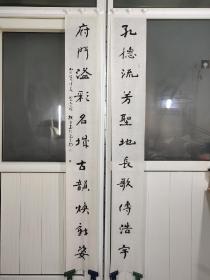 孔德流芳聖地長歌傳浩宇
府門溢彩名城古韻煥新姿